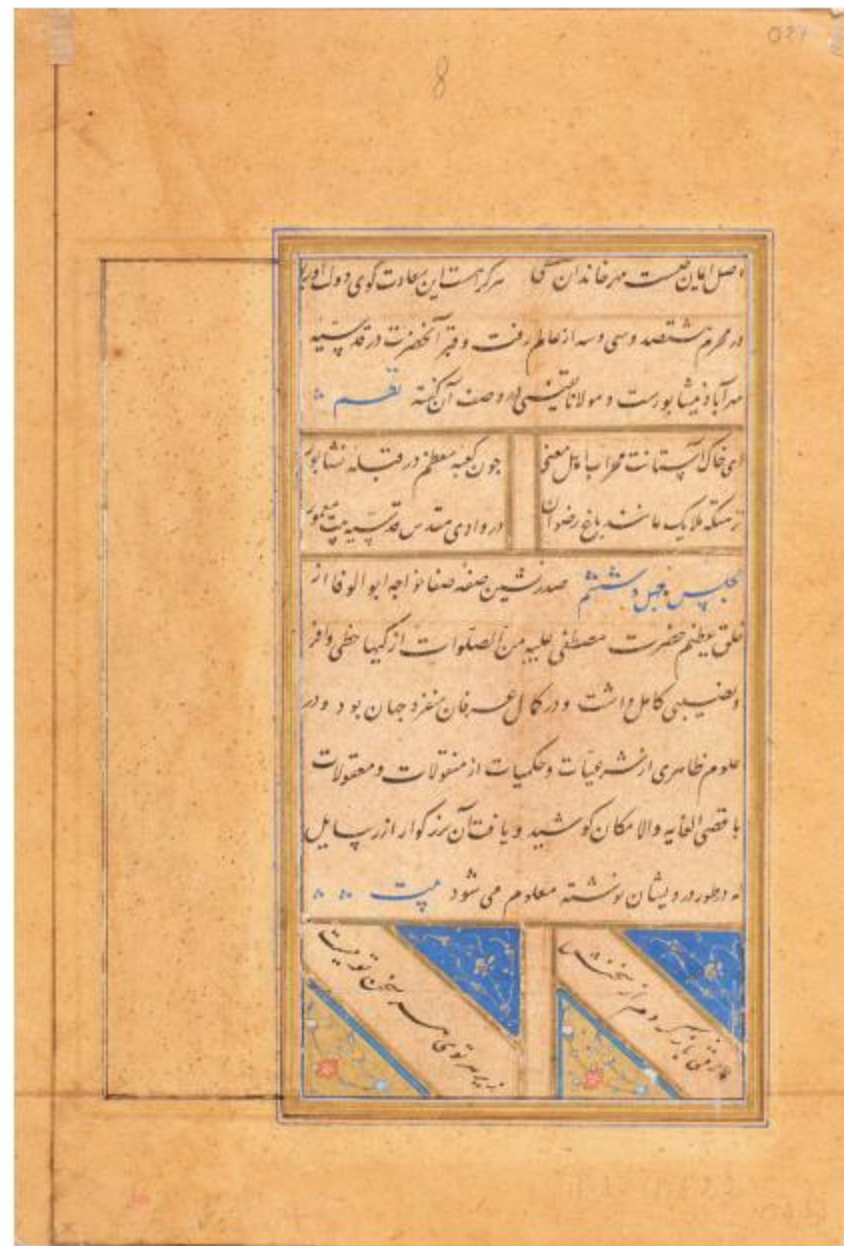 8
اصل ایمان هست مهر خاندان هرکرا هست این سعادت گوی دولت
در محرم هشتصد و سی و سه از عالم رفت و قبر آنحضرت در قدسیه
مهرآباد نیشابورست و مولانا در وصف آن گفته نظم
ای خاک آستانت محراب اهل معنی
چون کعبه معظم در قبله نشابور
ز مسکه ملایک مانند باغ رضوان
در وادی مقدس قدسیه بیت معمور
مجلس چهل و ششم صدرنشین صفه صفا خواجه ابوالوفا از
خلق عظیم حضرت مصطفی علیه من الصلوات از کیها حظی وافر
و نصیبی کامل داشت و در کمال عرفان منفرد جهان بود و در
علوم ظاهری از شرعیات و حکمیات از منقولات و معقولات
باقصی الغایه والامکان کوشید و یافت آن بزرگوار از رسایل
که در طور درویشان نوشته معلوم می شود بیت
باز کردم از سخنها
سخن تو نیست